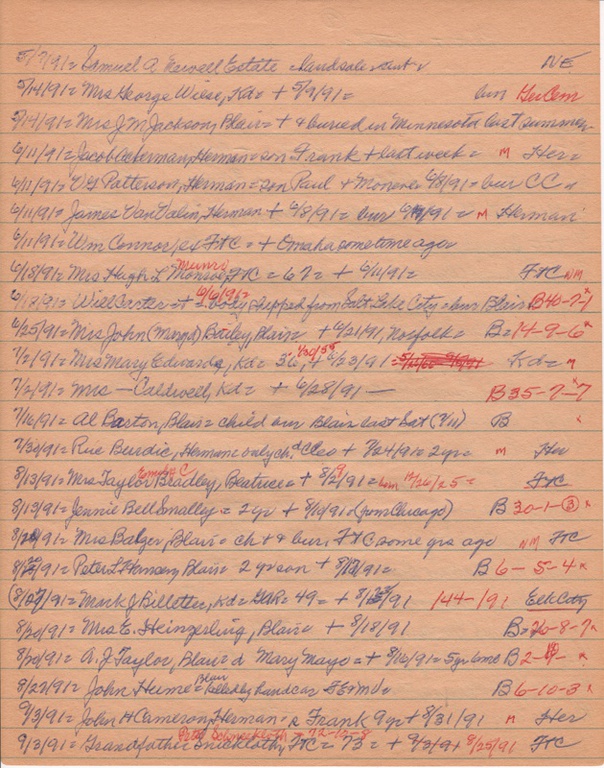 5/7/91= Samuel A. Newell Estate = landsale NE
5/14/91= Mrs George Wiese, Kd= + 5/9/91= bur Ger Cem
5/14/91= Mrs J M Jackson, Blair= + & buried in Minnesota last summer
6/11/91= Jacob Ackerman, Herman= son Frank + last week= M Her=
6/11/91= Patterson, Herman= son Paul + Monona 6/8/91= bur CC
6/11/91= James Van Valin, Herman + 6/8/91= bur 6/ /91= M Herman
6/11/91= Wm Connor, ex FtC= + Omaha sometime ago
Munro
6/18/91= Mrs Hugh L Monroe, FtC = 67= + 6/11/91= FtC NM
6/6/91=
6/18/91= Will Carter= + body shipped from Salt Lake City= bur Blair B40-7-1 x
6/25/91= Mrs John (Mary J) Bailey, Blair= + 6/21/91, Norfolk= B=14-9-6 x
7/2/91= Mrs Mary Edwards, Kd= 36, + 6/23/91= Kd= M
7/2/91= Mrs — Caldwell, Kd= + 6/28/91 — B35-7-7 x
7/16/91= Al Baston, Blair= child bur Blair last Sat (7/11) B x
7/30/91= Rue Burdic, Herman= only ch, d Cleo + 7/24/91= 2yr= M Her
8/13/91= Mrs Taylor Bradley, Beatrice= + 8/2/91= born 12/26/25= FtC
8/13/91= Jennie Bell Smalley= 2yr + 8/10/91 (from Chicago) B 30-1-3 x
8/20/91= Mrs Badger, Blair= ch + & bur, FtC some yrs ago NM FtC
8/20/91= Peter L Hansen, Blair= 2 yr son + 8/ /91= B6-5-4 x
8/27/91= Mark J Billetter, Kd= GAR= 49= + 8/ /91 144-191 Elk City
8/20/91= Mrs E. Heinzerling, Blair= + 8/18/91 B=26-8-7 x
8/20/91= A. J. Taylor, Blair= d Mary Mayo= + 8/16/91= 5yr 6mo B2- x
Blair
8/27/91= John Hume= killed by handcar FE&MV= B6-10-3 x
9/3/91= John H Cameron, Herman= s Frank 9yr + 8/31/91 M Her
Schneekloth = 72-10-8
9/3/91= Grandfather Snickloth, FtC= 73= + 9/3/91 8/25/91 FtC